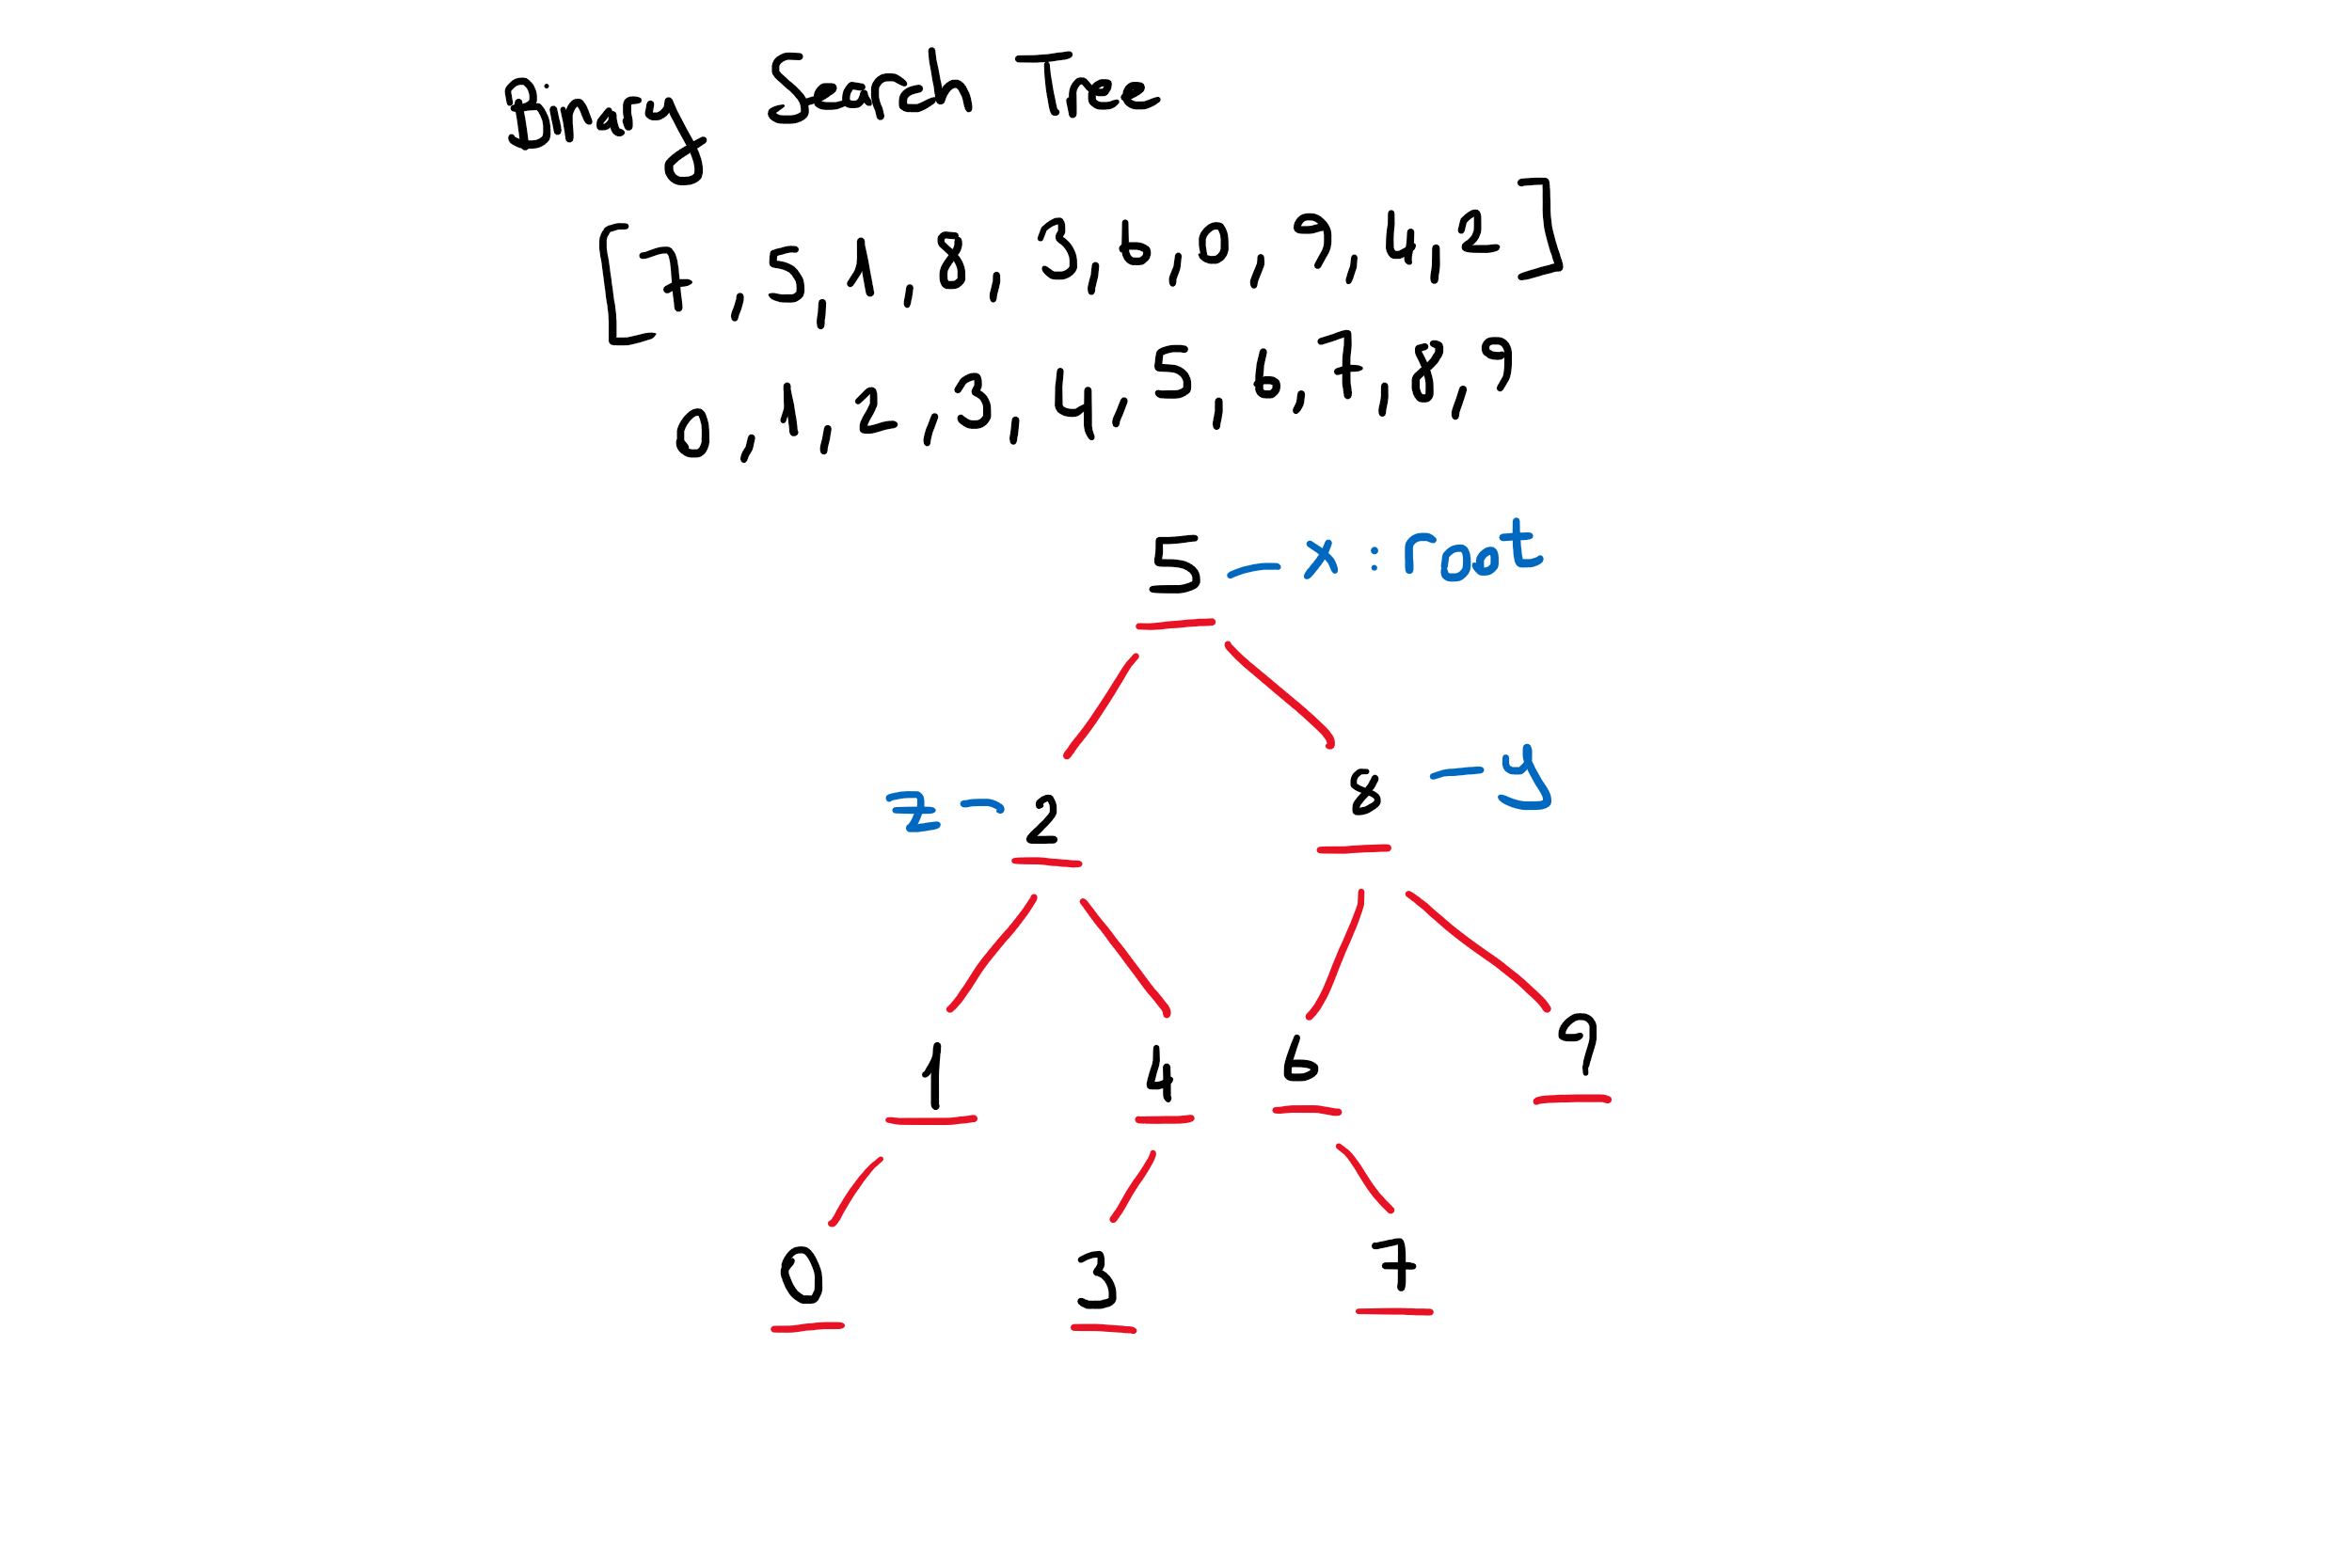 Binary Search Tree
[7, 5, 1, 8, 3, 6, 0, 9, 4, 2]
0, 1, 2, 3, 4, 5, 6, 7, 8, 9
5 - x : root
z - 2
8 - y
1
4
6
9
0
3
7